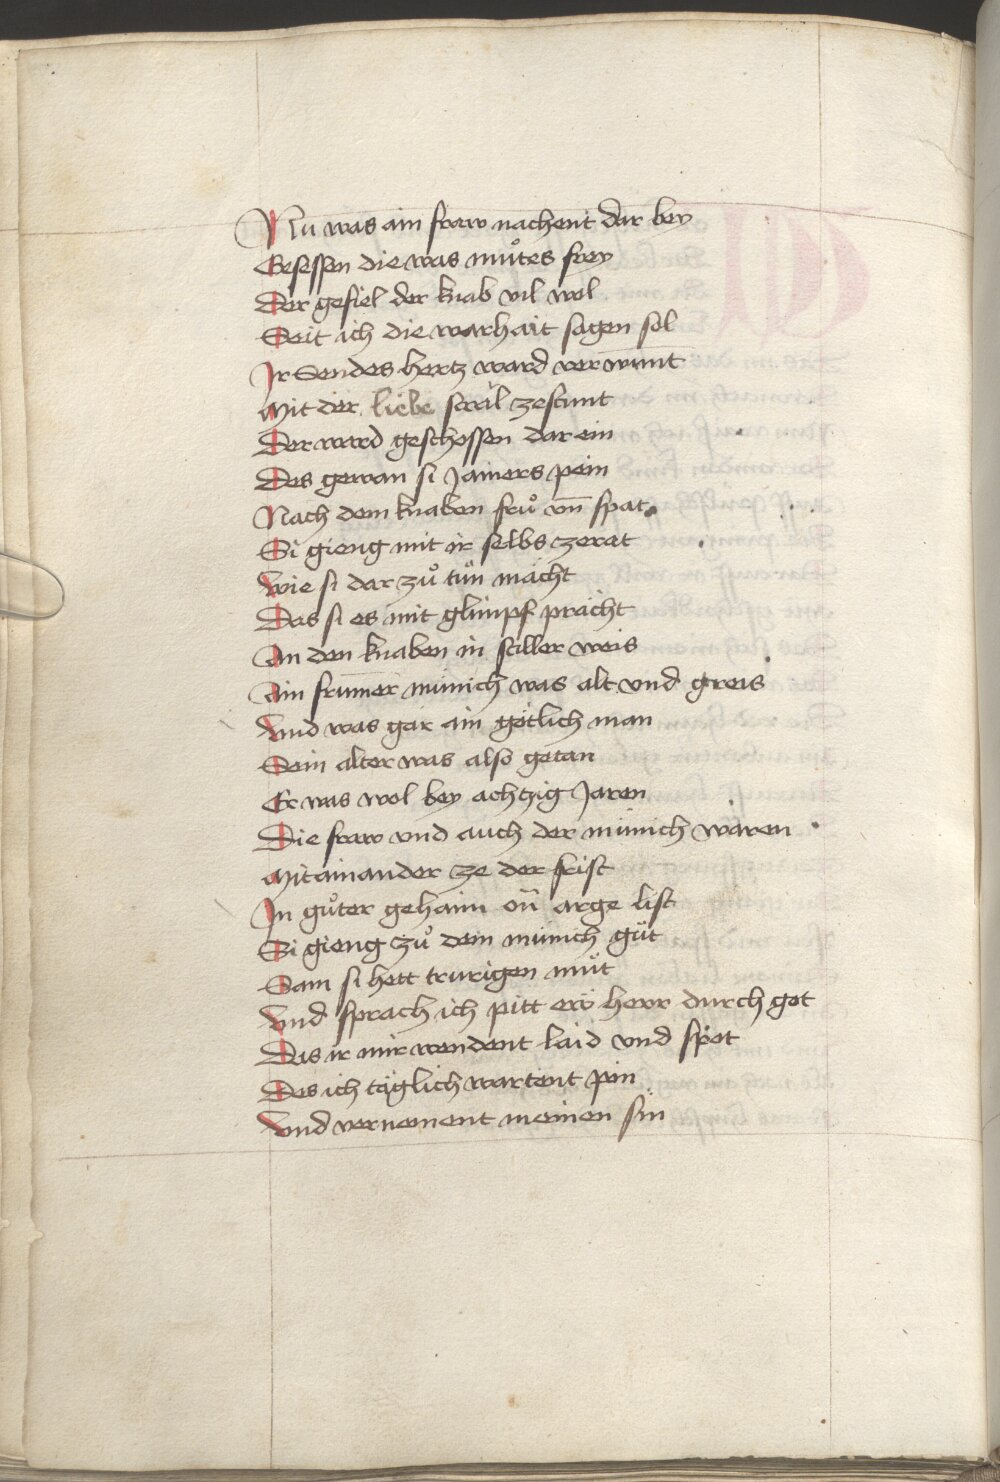 Nu was ain fraw nachent dar bey
Gesessen die was můtes frey
Der gefiel der knab vil wol
Seit ich die warhait sagen sol
Ir Sendes hertz ward verwunt
Mit der liebe strāl zestunt
Der ward geschossen dar ein
Des gewan si Jamers pein
Nach dem knaben frů vn̄ spat
Si gieng mit ir selbs zerat
Wie si dar zů tůn mächt
Das si es mit glimpf prächt
An den knaben in stiller weis
Ain frum̄er münich was alt vnd greis
Vnd was gar ain götlich man
Sein alter was also getan
Er was wol bey achtzig Jaren
Die fraw vnd auch der münich waren
Mitainander ze der frist
In gůter gehaim on̄ arge list
Si gieng zů dem münich gůt
Sam si hett trurigen můt
Vnd sprach ich pitt ew herr durch got
Das ir mir wendent laid vnd spot
Des ich täglich wartent pin
Vnd vernement meinen sin